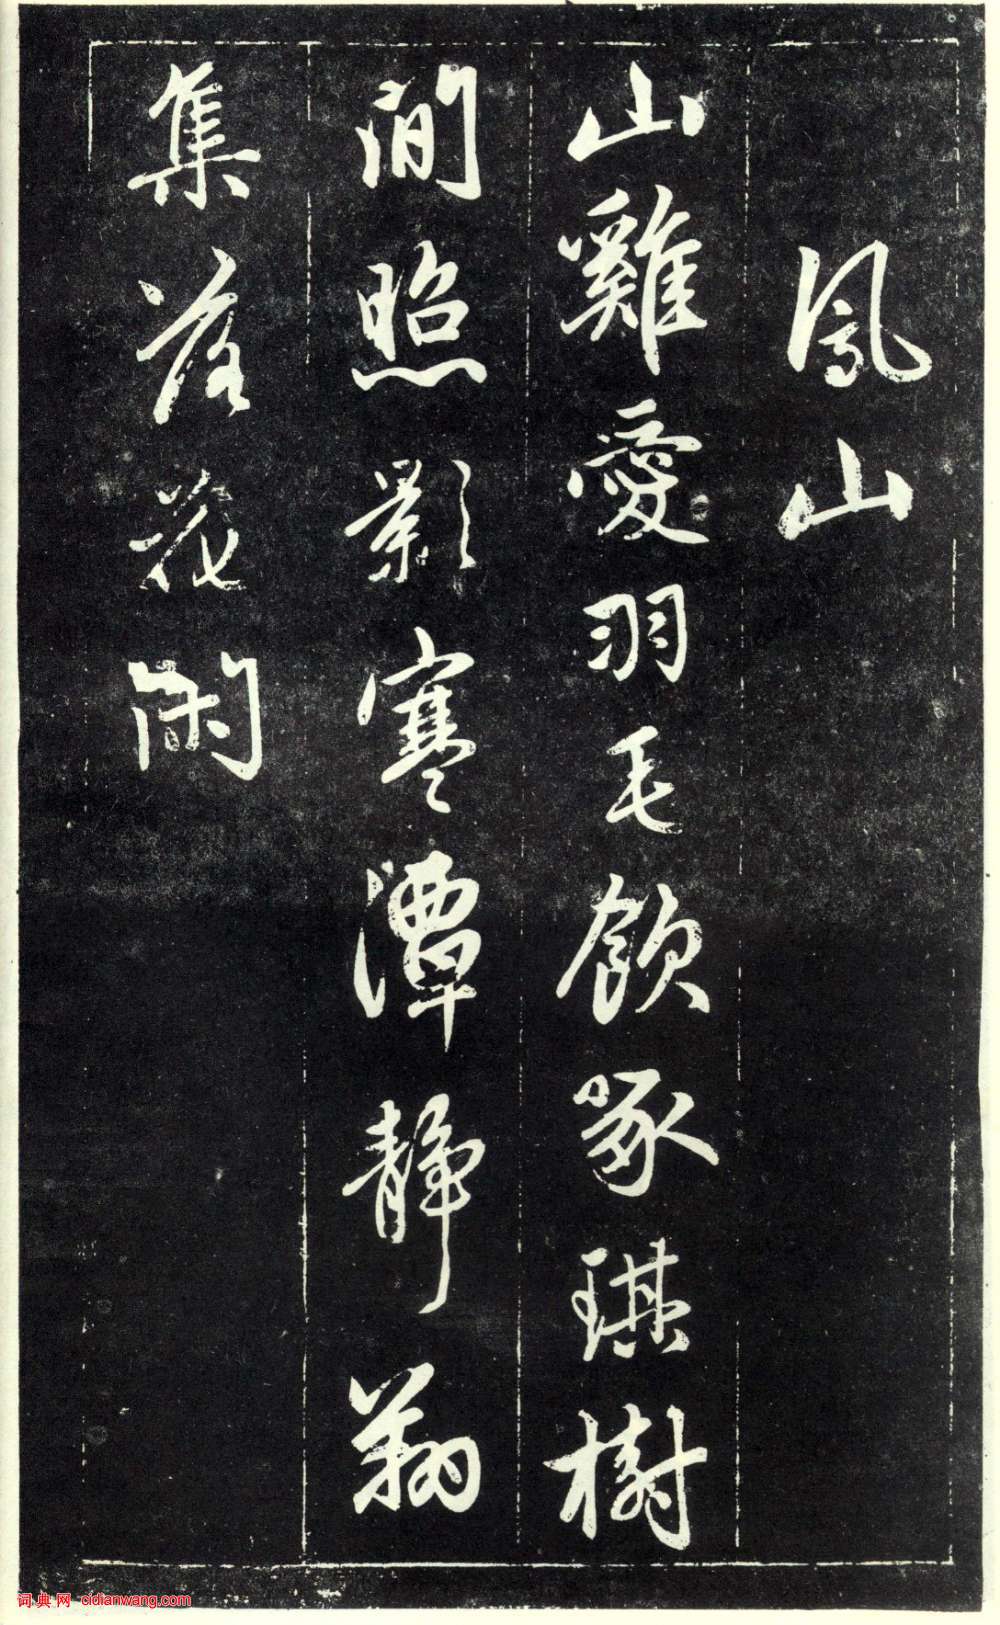 鳳山
山雞愛羽毛飲啄琪樹
間照影寒潭靜翔
集落花閑
词典网 cidianwang.com